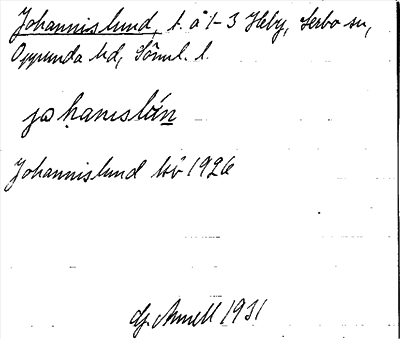 Johannislund, t. å 1–3 Heby, Lerbo sn,
Oppunda hd, Söml. l.
johanıslún
Johannislund lsö 1926
Gj. Arnell 1931